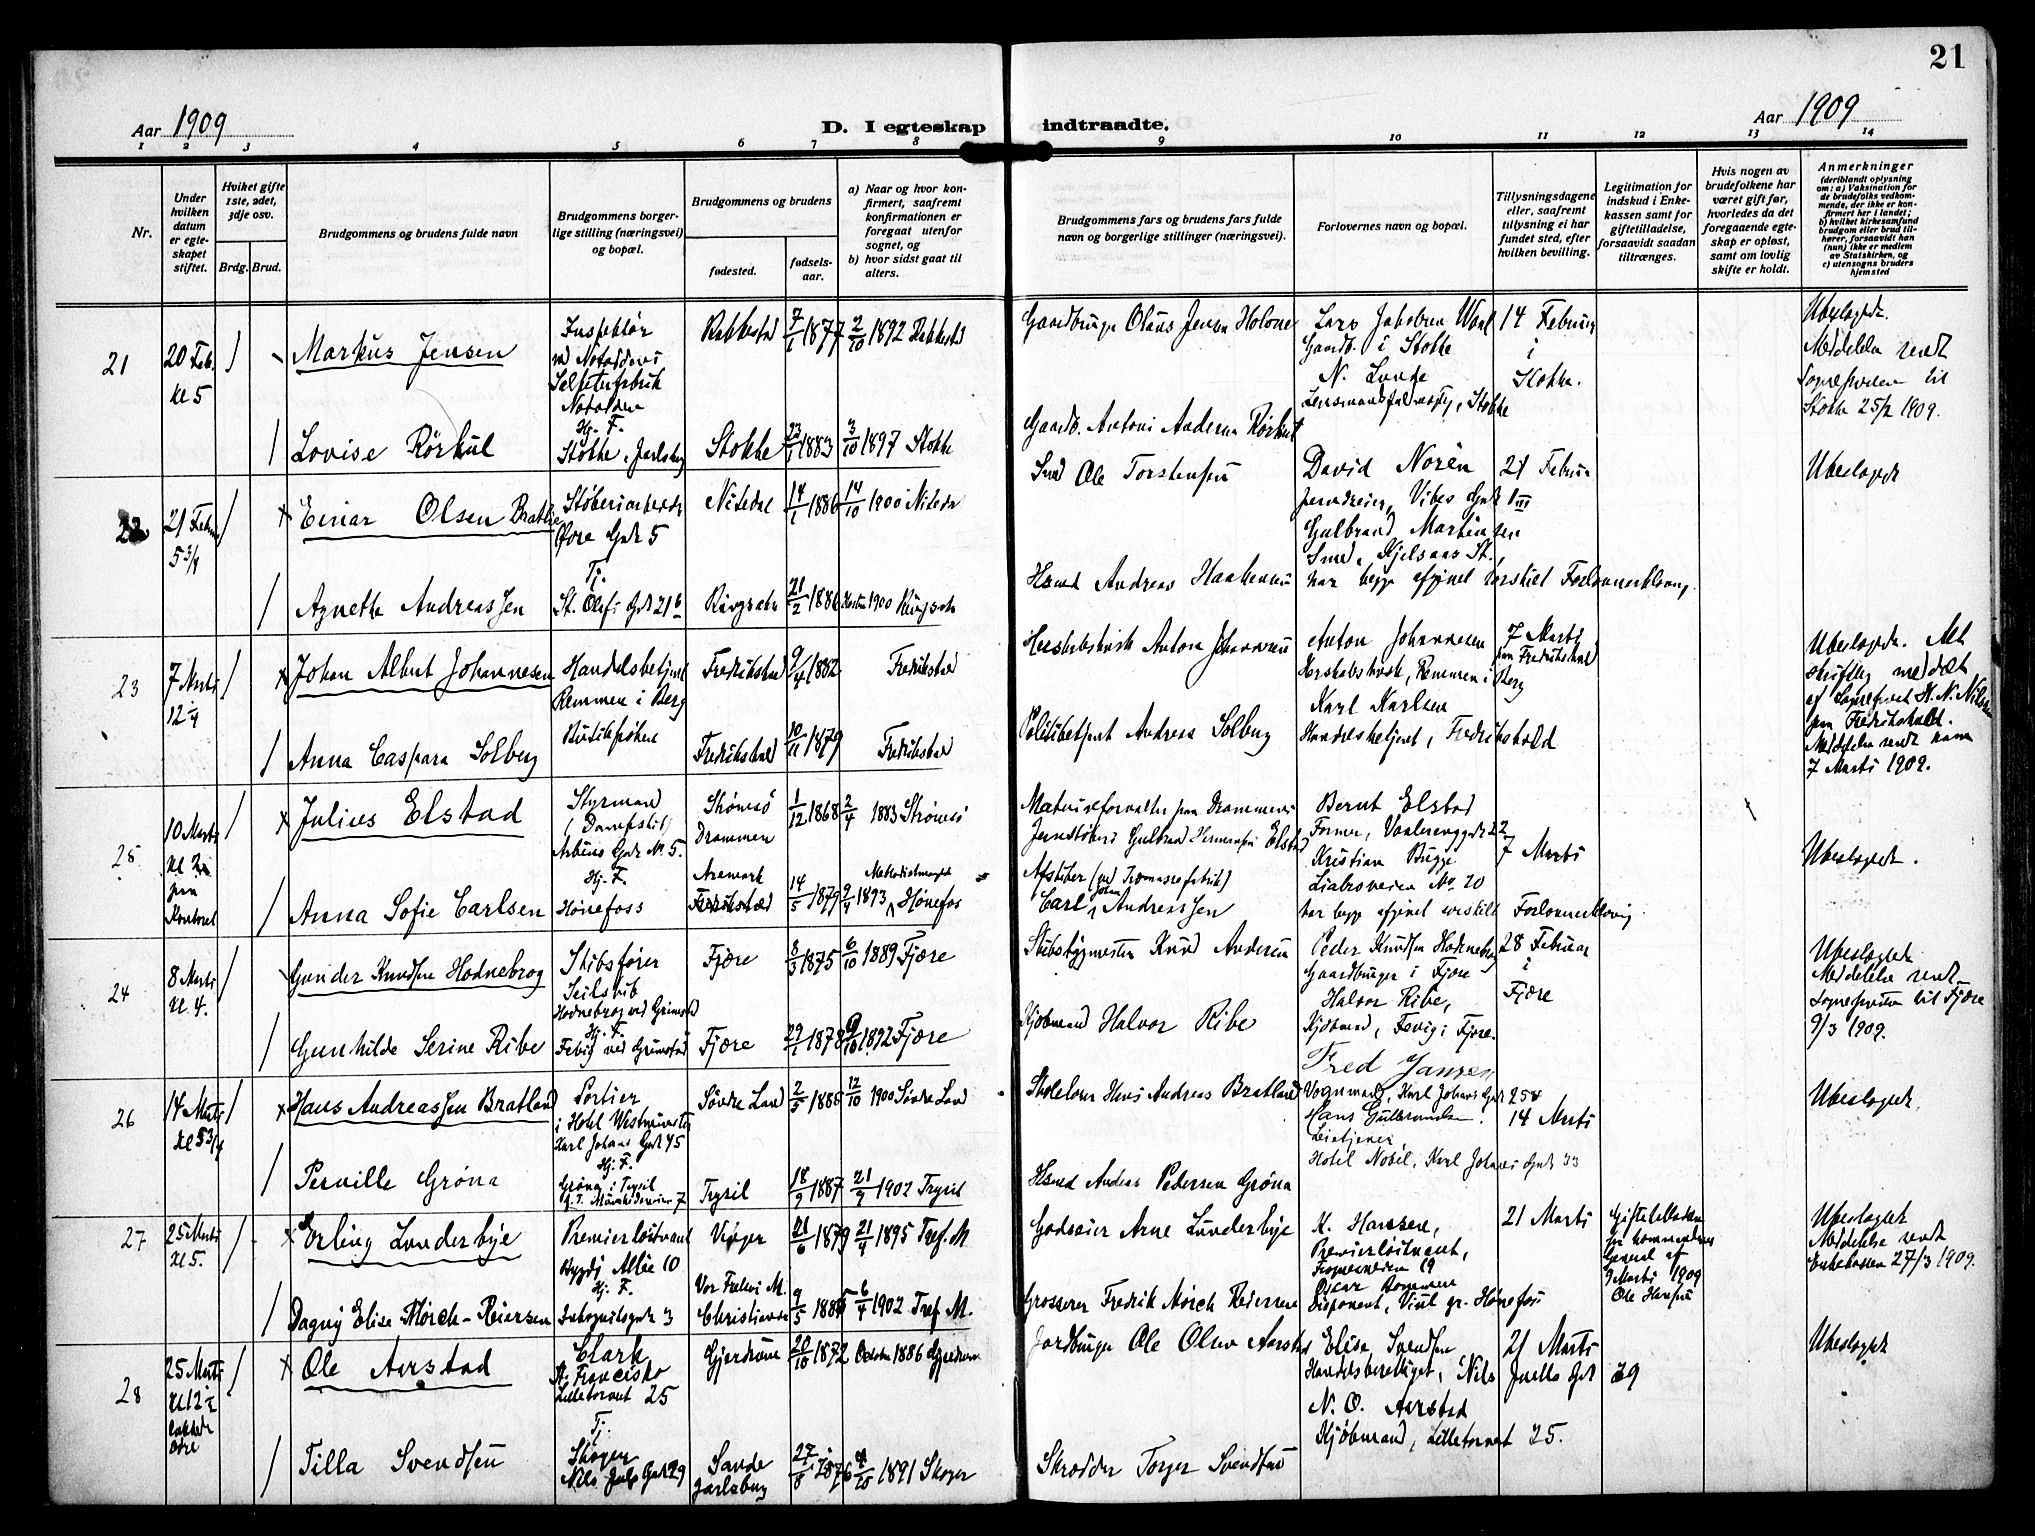 21
Aar 1909
D. I egteskap indtraadte.
Aar 1909
1 2 3 4 5 6 7 8 9 10 11 12 13 14
Nr.
Under hvilken datum er egteskapet stiftet.
Hviket gifte 1ste, 2det, 3dje osv.
Brdg. Brud.
Brudgommens og brudens fulde navn
Brudgommens borgerlige stilling (næringsvei) og bopæl.
Brudgommens og brudens
fødested.
fødselsaar.
a) Naar og hvor konfirmert, saafremt konfirmationen er foregaat utenfor sognet, og
b) hvor sidst gaat til alters.
Brudgommens fars og brudens fars fulde navn og borgerlige stillinger (næringsvei).
Forlovernes navn og bopæl.
Tillysningsdagene eller, saafremt tillysning ei har fundet sted, efter hvilken bevilling.
Legitimation for indskud i Enkekassen samt for giftetilladelse, forsaavidt saadan tiltrænges.
Hvis nogen av brudefolkene har været gift før, hvorledes da det foregaaende egteskap er opløst, samt om lovlig skifte er holdt.
Anmerkninger
(deriblandt oplysning om: a) Vaksination for de brudefolks vedkommende, der ikke er konfirmert her i landet;
b) hvilket kirkesamfund brudgom eller brud tilhører, forsaavidt han (hun) ikke er medlem av Statskirken, og
c) utensogns bruders hjemsted
21
20 Feb.
kl 5
Markus Jensen
Inspektør
Notodden
Hj. F.
Rakkestad
7/1 1877
2/10 1892 Rakkestd
Gaardbruger Olaus Jensen
Gaardb. i Stokke
N. Lunde
14 Februar
i
Stokke.
Ubeslægtede.
Meddelelse sendt
Sognepresten til
Stokke 25/2 1909.
Lovise Rørkul
Stokke, Jarlsberg
Stokke
23/1 1883
3/10 1897 Stokke
Gaardb. Antoni Andersen Rørkul
22
21 Februar
5 3/4
Einar Olsen Bratlie
Øvre Gade 5
Tj.
Nitedal
14/1 1886
14/10 1900 Nitedal
Smed Ole Torstensen
David Norén
Gulbrand Martinsen
Smed, Kjelsaas St.
har begge afgivet forskrift Forlovererklæring
21 Februar
Ubeslægtede
Agnethe Andreassen
St. Olafs Gade 21 b
Ringsaker
21/2 1886
Høsten 1900 Ringsaker
Hsmd Andreas Haakensen
23
7 Marts
12 1/4
Johan Albert Johannesen
Handelsbetjent
Remmen i Berg
Fredrikshald
9/4 1882
Fredrikshald
Anton Johannesen
Karl Karlsen
Handelsbetjent, Fredrikshald
7 Marts
paa Fredrikshald
Berg
Ubeslægtede. Alt
skriftlig meddelt
af Sognepræst H. N. Nilsen
paa Fredrikshald.
Meddelelse sendt ham
7 Marts 1909.
Anna Caspara Solberg
Fredrikshald
10/11 1879
Fredrikshald
Politibetjent Andreas Solberg
25
10 Marts
paa
Kontoret
Julius Elstad
Styrmand
(Dampskib)
Arbins Gade No 5.
Hj. F.
Strømsø
Drammen
1/12 1868
2/4 1883 Strømsø
Materialforvalter paa Drammens
Jernstøberi Gulbrand Hermansen Elstad
Bernt Elstad
Former, Vaalerenggade 22
Kristian Bugge
Liabroveien No 20
har begge afgivet forskrift Forlovererklæring
7 Marts
Ubeslægtede.
Anna Sofie Carlsen
Hønefoss
Aremark
14/5 1879
9/4 1893 Hønefos
Carl Johan Andreassen
24
8 Marts
kl 4.
Gunder Knudsen Hodnebrog
Skibsfører
Seilskib
Hodnebrog ved Grimstad
Hj. F.
Fjære
8/3 1875
6/10 1889 Fjære
Skibstømmermester Knud Andersen
Peder Knudsen Hodnebrog
Gaardbruger i Fjære
Halvor Ribe,
Kjøbmand, Fevig i Fjære.
28 Februar
i
Fjære
Ubeslægtede
Meddelelse sendt
Sognepresten til Fjære
9/3 1909.
Gunhilde Serine Ribe
Fevig ved Grimstad
Fjære
29/1 1878
9/10 1892 Fjære
Kjøbmand Halvor Ribe
26
14 Marts
kl 5 3/4
Hans Andreassen Bratland
Portier
i Hotel Westminster
Karl Johans Gade 45
Hj. F.
Søndre Land
2/5 1885
12/10 1900 Søndre Land
Skolelærer Hans Andreas Bratland
Fred Jansen
Vognmand, Karl Johans Gade 25 4
Hans Gulbrandsen
Hotel Nobel, Karl Johans Gade 33
14 Marts
Ubeslægtede.
Pernille Grøna
Grøna i Trysil
Trysil
18/9 1887
21/9 1902 Trysil
Hsmd Anders Pedersen Grøna
27
25 Marts
kl 5.
Erling Lunderbye
Premierløitnant
Bygdø Allé 60
Hj. F.
Vinger
21/6 1879
21/4 1895 Tref. M
Godseier Arne Lunderbye
K. Hansen,
Premierløitnant,
Frognerveien 19
Disponent, Viul pr. Hønefos
21 Marts
Giftetilladelse
fra kommanderende
General af
9 Marts 1909
Ole Hansen
Ubeslægtet
Meddelelse sendt
Enkekassen 27/3 1909.
Dagny Elise Mørch-Reiersen
Inkognitogade 3
Vor Frelsers M.
Christiania
9/5 1885
6/4 1902 Tref. M.
Grosserer Fredrik Mørch Reiersen
28
25 Marts
Ole Aarstad
Clark
St. Francisko
Lilletorvet 25
Tj.
Gjerdrum
20/10 1872
Octbr 1886 Gjerdrum
Jordbruger Ole Olsen Aarstad
Elise Svendsen
Handelsberettiget, Nils Juels Gade 29
N. O. Aarstad
Kjøbmand, Lilletorvet 25.
21 Marts
Ubeslægtede
Tilla Svendsen
Skoger
Nils Juels Gade 29
Sande
Jarlsberg
27/8 1876
4/10 1891 Skoger
Skrædder Torger Svendsen